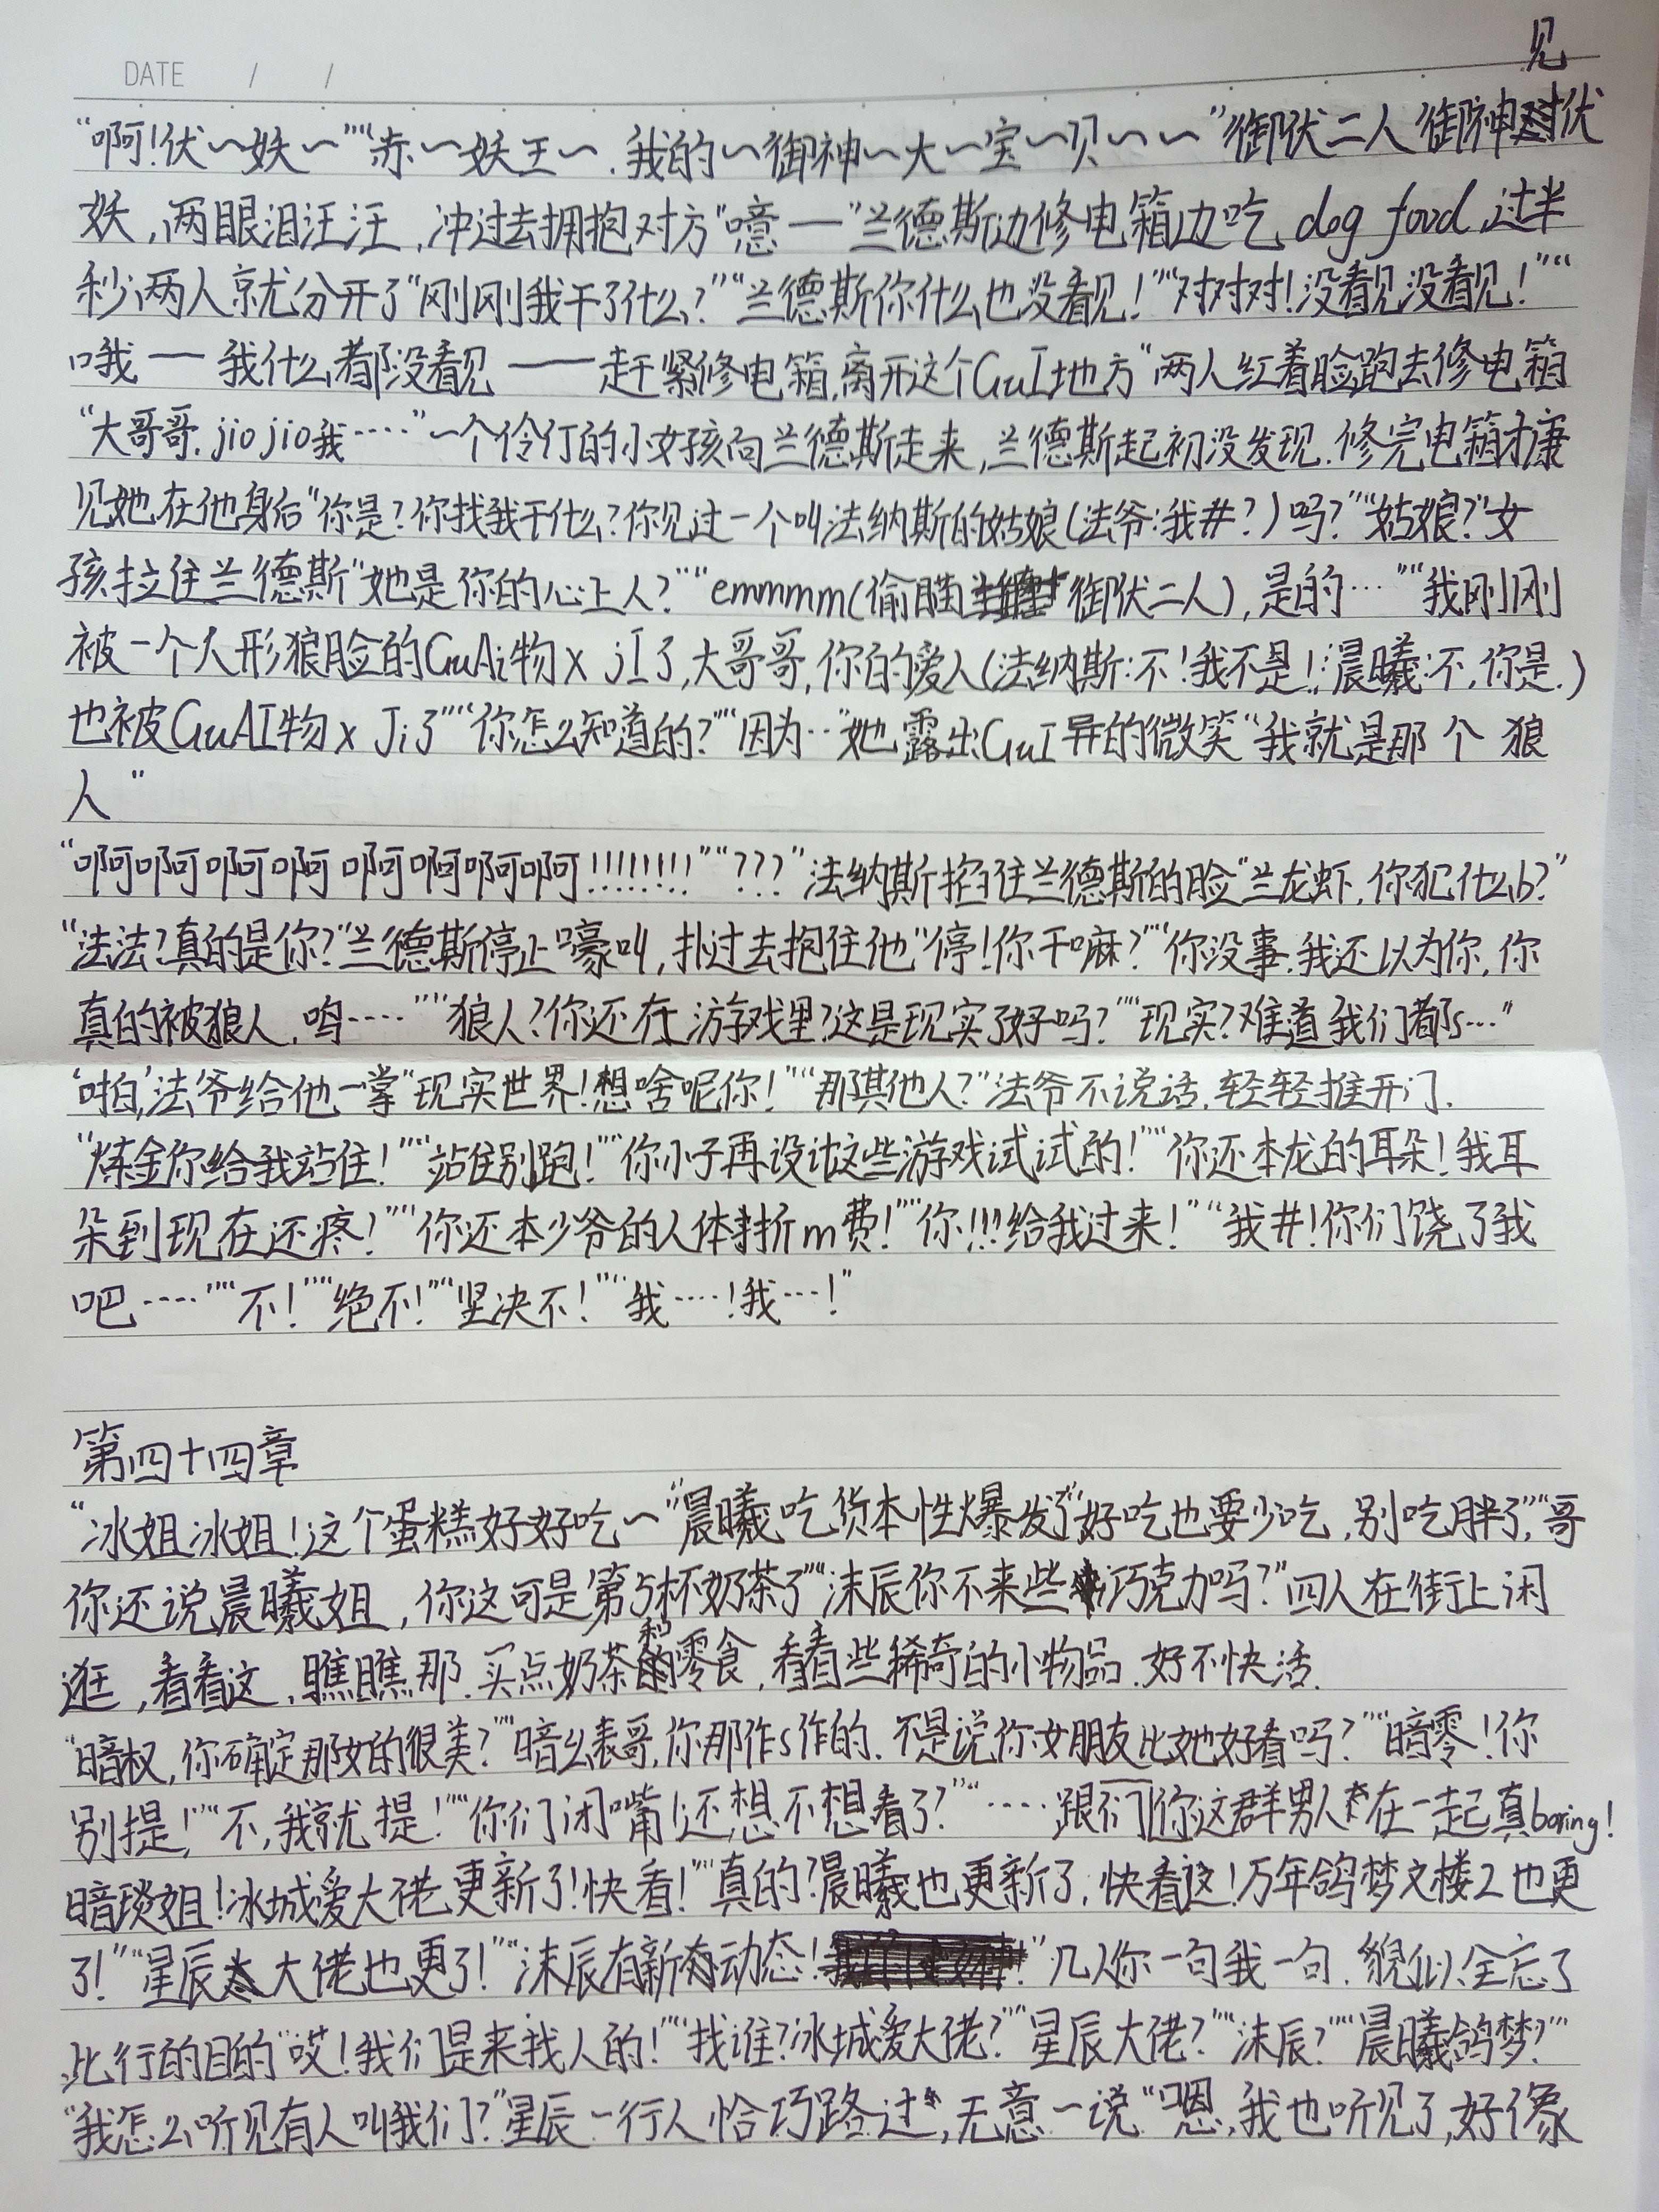 DATE / /
见
“啊!伏~妖~”“赤~妖王~.我的~御神~大~宝~贝~~~”御伏二人御神伏
妖,两眼泪汪汪,冲过去拥抱对方“噫——”兰德斯边修电箱边吃 dog food,过半
秒,两人就分开了“刚刚我干了什么?”“兰德斯你什么也没看见!”“对对对!没看见没看见!”“
哦——我什么都没看见——赶紧修电箱,离开这个GuI地方“两人红着脸跑去修电箱
“大哥哥.jiojio我····”一个伶仃的小女孩向兰德斯走来,兰德斯起初没发现.修完电箱才
见她在他身后“你是?你找我干什么?你见过一个叫法纳斯的姑娘(法爷:我#?)吗?”“姑娘?”女
孩拉住兰德斯“她是你的心上人?”“emmmm(偷瞄御伏二人),是的···”“我刚刚
被一个人形狼脸的GuAi物x jI了,大哥哥,你的爱人(法纳斯:不!我不是!;晨曦:不,你是.)
也被GuAI物x Ji了”“你怎么知道的?”“因为··”她露出GuI异的微笑“我就是那个 狼
人”
“啊啊啊啊啊啊啊啊!!!!!!!!”“???”法纳斯掐住兰德斯的脸“兰龙虾,你犯什么b?”
“法法?真的是你?”兰德斯停止嚎叫,扑过去抱住他“停!你干嘛?”“你没事.我还以为你,你
真的被狼人,呜····”“狼人?你还在游戏里?这是现实了好吗?”“现实?难道我们都s···”
‘啪’,法爷给他一掌“现实世界!想啥呢你!”“那其他人?”法爷不说话,轻轻推开门.
“炼金你给我站住!”“站住别跑!”“你小子再设计这些游戏试试的!”“你还本龙的耳朵!我耳
朵到现在还疼!”“你还本少爷的人体打折m费!”“你!!!给我过来!”“我#!你们饶了我
吧····”“不!”“绝不!”“坚决不!”“我····!我···!”
第四十四章
“冰姐冰姐!这个蛋糕好好吃~”晨曦吃货本性爆发了“好吃也要少吃,别吃胖了”“哥
你还说晨曦姐,你这可是第5杯奶茶了”“沫辰你不来些巧克力吗?”四人在街上闲
逛,看看这,瞧瞧那.买点奶茶和零食,看看些稀奇的小物品.好不快活.
“暗权,你确定那女的很美?”“暗幺表哥,你那作s作的.不是说你女朋友比她好看吗?”“暗零!你
别提!”“不,我就提!”“你们闭嘴!还想不想看了?”“····跟你们这群男人在一起真boring!
暗琰姐!冰城爱大佬更新了!快看!”“真的?晨曦也更新了,快看这!万年鸽梦文楼2也更
了!”“星辰大佬也更了!”“沫辰有新动态!”几人你一句我一句.貌似全忘了
此行的目的“哎!我们是来找人的!”“找谁?冰城爱大佬?”“星辰大佬?”“沫辰?”“晨曦鸽梦?”
“我怎么听见有人叫我们?”星辰一行人恰巧路过,无意一说“嗯,我也听见了,好像